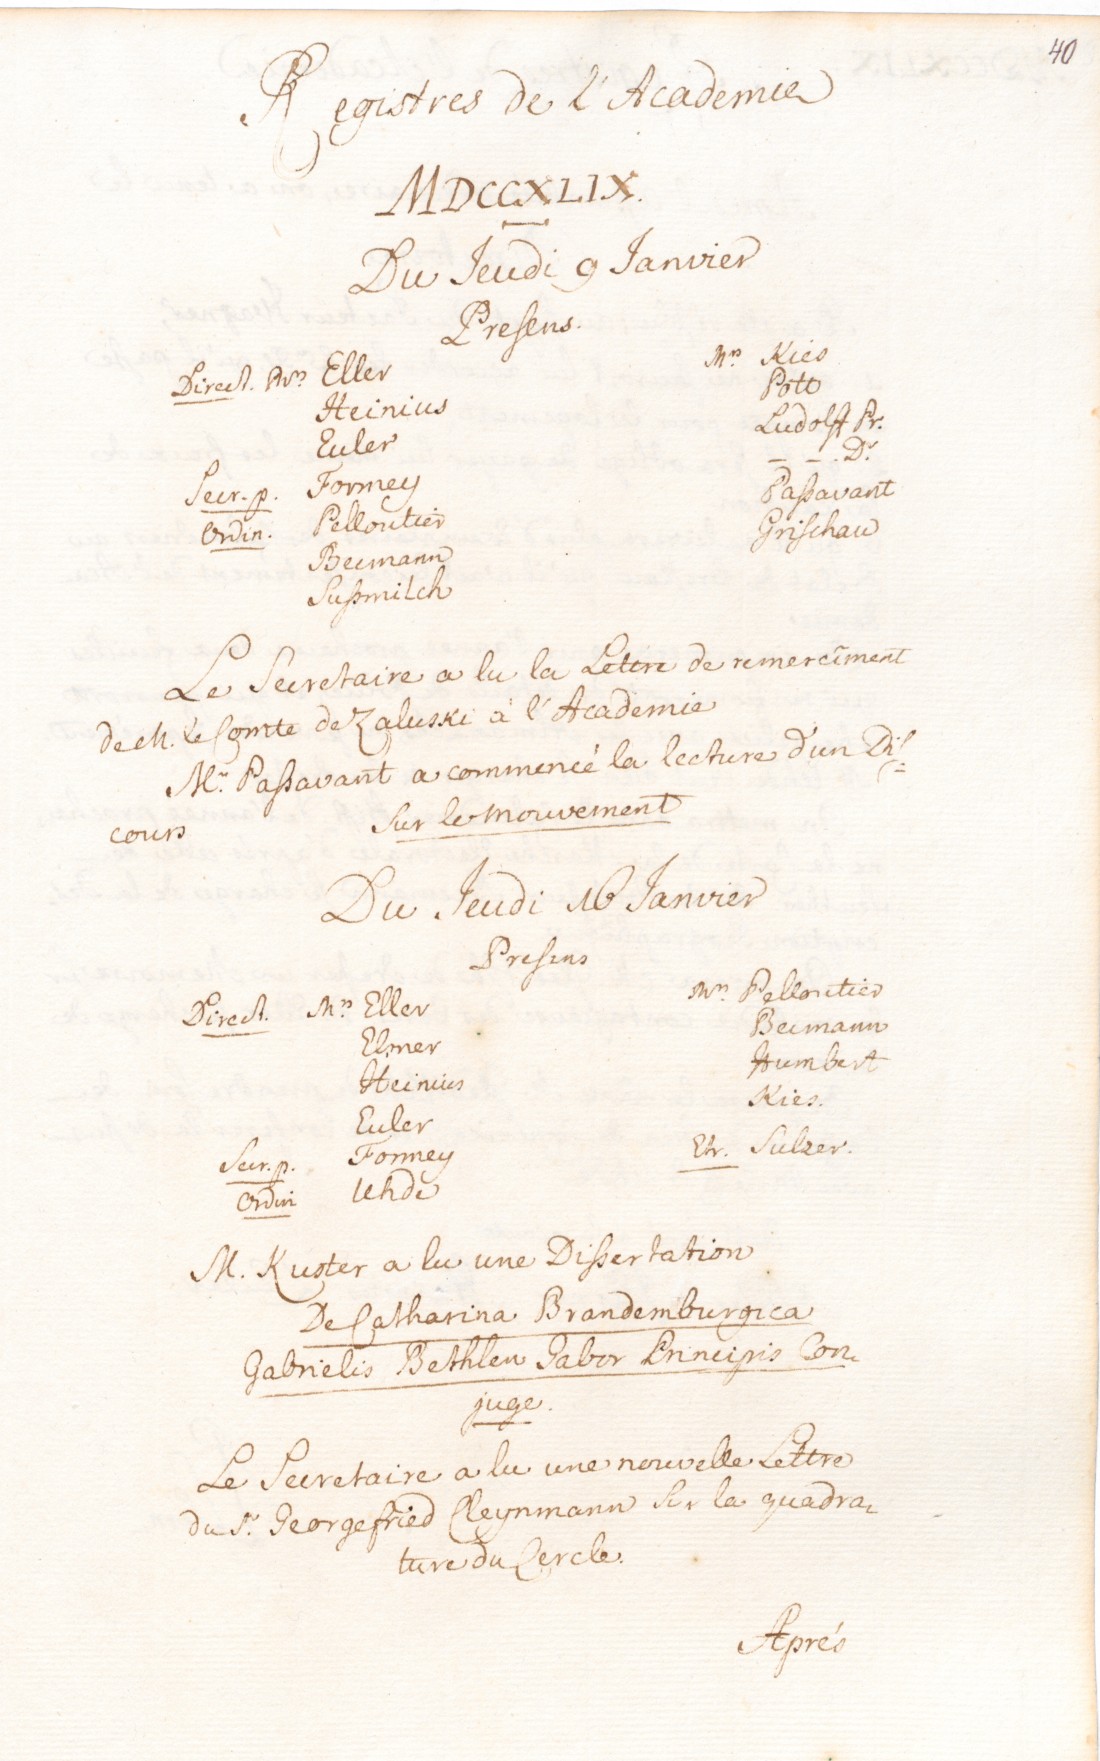 40
Registres de l'Academie
MDCCXLIX.
Du Jeudi 9 Janvier
Presens.
Direct. Mrs Eller
Heinius
Euler
Secr. p. Formey
Ordin. Pelloutier
Becmann
Sußmilch
Mrs Kies
Pott
Ludolff Pr.
_ _ . Dr
Paßavant
Grischau
Le Secretaire a lu la Lettre de remercîment
de M. le Comte de Zaluski à l'Academie
Mr. Paßavant a commencé la lecture d'un Dis=
cours sur le mouvement
Du Jeudi 16 Janvier
Presens
Direct. Mrs Eller
Elsner
Heinius
Euler
Secr. p. Formey
Ordin Uhde
Mrs Pelloutier
Becmann
Humbert
Kies.
Etr. Sulzer.
M. Kuster a lu une Dißertation
De Catharina Brandemburgica
Gabrielis Bethlen Gabor Principis Con-
juge.
Le Secretaire a lu une nouvelle Lettre
du Sr. Georgefried Cleynmann sur la quadra-
ture du Cercle.
Aprés